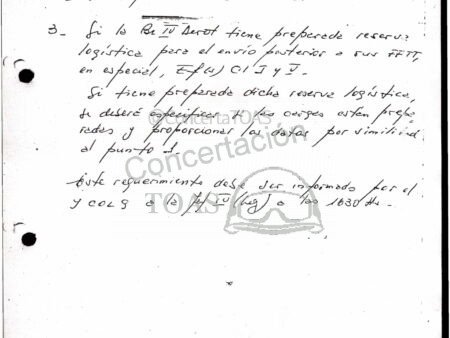 3- Si la Br IV Aerot tiene preparada reserva
logística para el envío posterior a sus FFTT,
en especial, Ef(s) Cl I y V.-
Si tiene preparada dicha reserva logística,
se deberá especificar si las cargas están prepa-
radas y proporcionar los datos por similitud
al punto 1.
Este requerimiento debe ser informado por el
a la IV a las 1630 Hs.-
©ConcertaTOAS
Concertación
TOAS